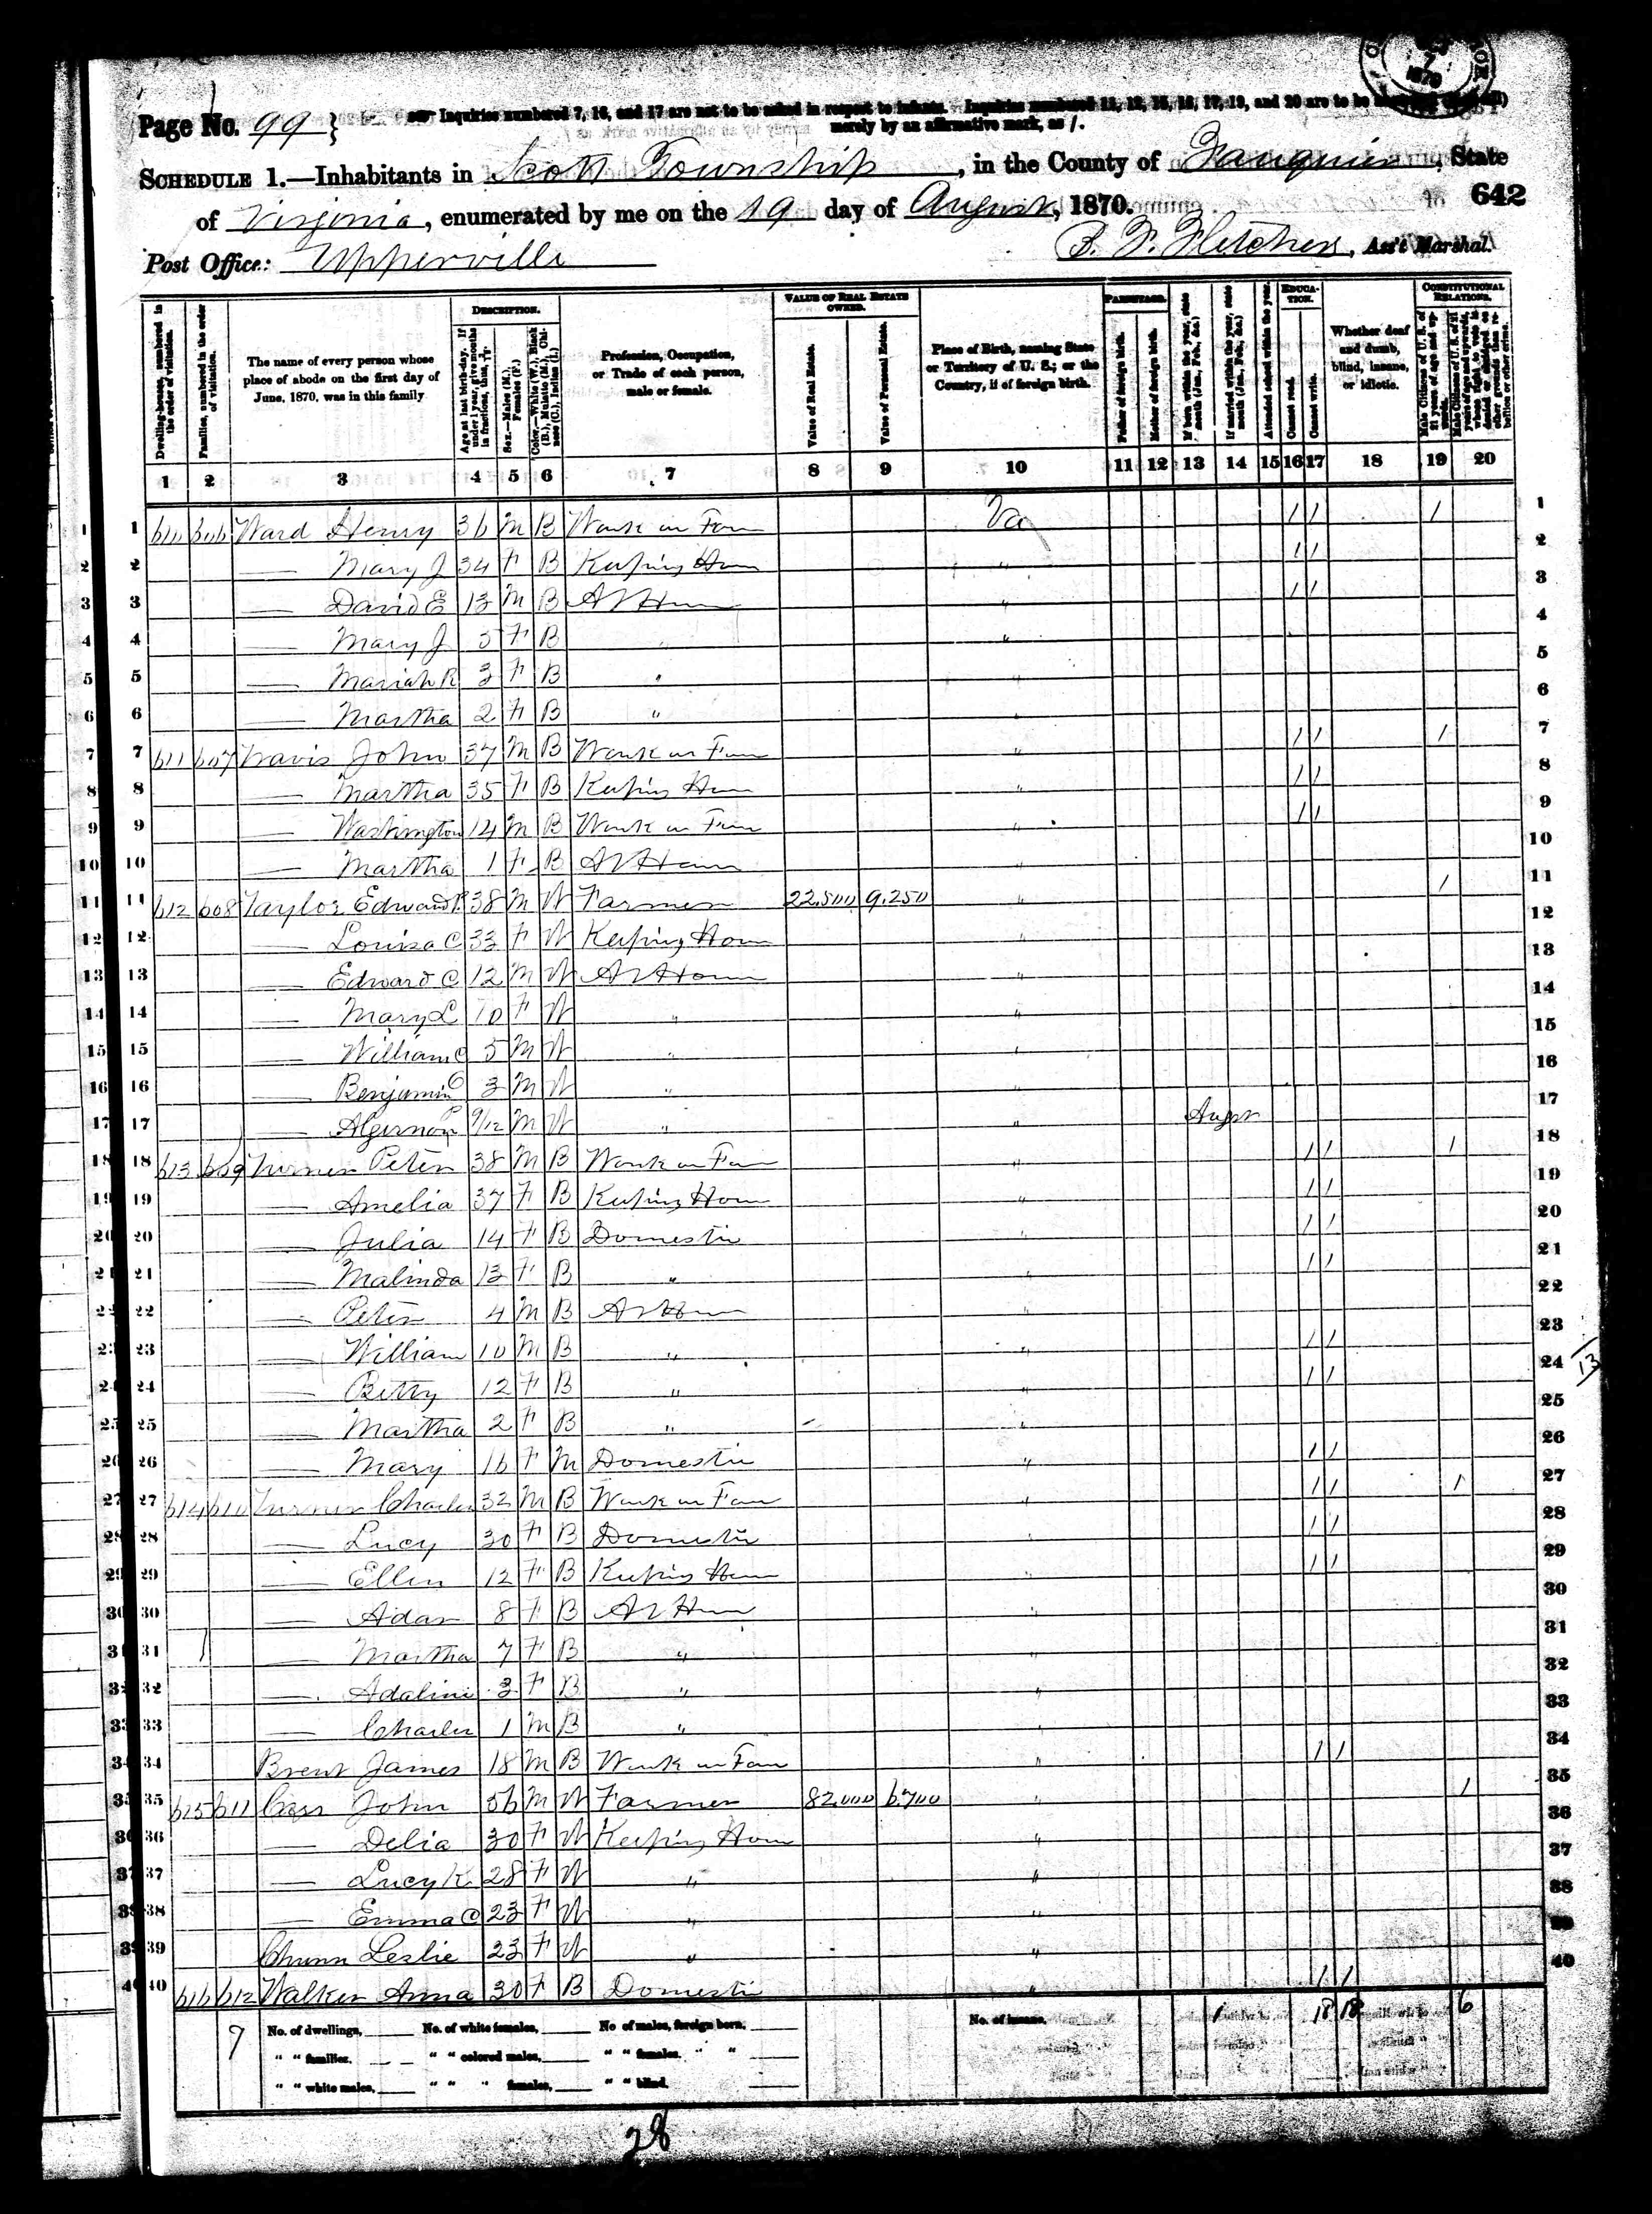 Page No. 99 }
Inquiries numbered 7, 16, and 17 are not to be asked in respect to infants. Inquiries numbered 11, 12, 15, 16, 17, 19, and 20 are to be
merely by an affirmative mark, as /.
SCHEDULE 1.—Inhabitants in Scott Township, in the County of Fauquier, State
of Virginia, enumerated by me on the 19 day of August, 1870.
642
Post Office: Upperville
B. F. Fletcher, Ass't Marshal.
Dwelling-houses, numbered in the order of visitation.
Families, numbered in the order of visitation.
The name of every person whose place of abode on the first day of June, 1870, was in this family
DESCRIPTION.
Age at last birth-day. If under 1 year, give months in fractions, thus, 3/12.
Sex.—Males (M.), Females (F.)
Color.—White (W.), Black (B.), Mulatto (M.), Chinese (C.), Indian (I.)
Profession, Occupation, or Trade of each person, male or female.
VALUE OF REAL ESTATE OWNED.
Value of Real Estate.
Value of Personal Estate.
Place of Birth, naming State or Territory of U. S.; or the Country, if of foreign birth.
PARENTAGE.
Father of foreign birth.
Mother of foreign birth.
If born within the year, state month (Jan., Feb., &c.)
If married within the year, state month (Jan., Feb., &c.)
Attended school within the year.
EDUCATION.
Cannot read.
Cannot write.
Whether deaf and dumb, blind, insane, or idiotic.
CONSTITUTIONAL RELATIONS.
Male Citizens of U. S. of 21 years of age and upwards.
Male Citizens of U. S. of 21 years of age and upwards, whose right to vote is denied or abridged on other grounds than rebellion or other crime.
1 2 3 4 5 6 7 8 9 10 11 12 13 14 15 16 17 18 19 20
1 610 606 Ward Henry 36 M B Work on Farm Va / / /
2 — Mary J 34 F B Keeping Hom " / /
3 — David E 13 M B At Hom " / /
4 — Mary J 5 F B " "
5 — Mariah R 3 F B " "
6 — Martha 2 F B " "
7 611 607 Travis John 37 M B Work on Farm " / / /
8 — Martha 35 F B Keeping Hom " / /
9 — Washington 14 M B Work on Farm " / /
10 — Martha 1 F B At Hom "
11 612 608 Taylor Edward 38 M W Farmer 22,500 9,250 " /
12 — Louisa C 33 F W Keeping Hom "
13 — Edward C 12 M W At Hom "
14 — Mary L 10 F W " "
15 — William C 5 M W " "
16 — Benjamin C 3 M W " "
17 — Algernon P 9/12 M W " " Augst
18 613 609 Turner Peter 38 M B Work on Farm " / / /
19 — Amelia 37 F B Keeping Hom " / /
20 — Julia 14 F B Domestic " / /
21 — Malinda 13 F B " " / /
22 — Peter 4 M B At Hom "
23 — William 10 M B " " / /
24 — Betty 12 F B " " / /
25 — Martha 2 F B " "
26 — Mary 16 F M Domestic " / /
27 614 610 Turner Charles 32 M B Work on Farm " / / /
28 — Lucy 30 F B Domestic " / /
29 — Ellen 12 F B Keeping Hom " / /
30 — Adar 8 F B At Hom "
31 — Martha 7 F B " "
32 — Adaline 3 F B " "
33 — Charles 1 M B " "
34 Brent James 18 M B Work on Farm " / /
35 615 611 Carr John 56 M W Farmer 82,000 6,700 " /
36 — Delia 30 F W Keeping Hom "
37 — Lucy K 28 F W " "
38 — Emma C 23 F W " "
39 Chunn Leslie 23 F W " "
40 616 612 Walker Anna 30 F B Domestic " / /
13
7
No. of dwellings, No. of white females, No of males, foreign born, No. of insane, 1 18 18 6
" " families, " " colored males, " " females, " "
" " white males, " " " females, " " blind,
28